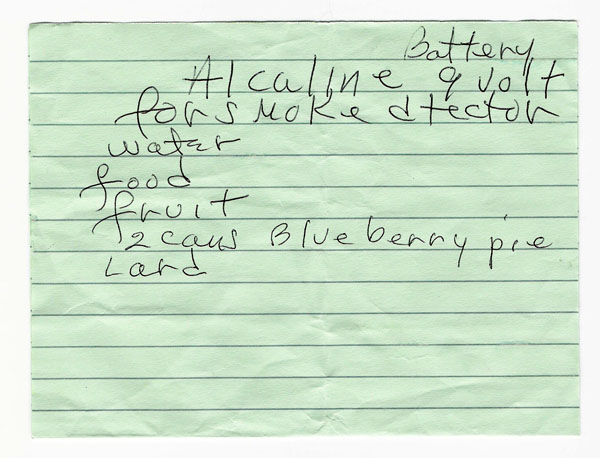 Battery
Alcaline 9 volt
for smoke dtector
water
food
fruit
2 cans Blueberry pie
Lard